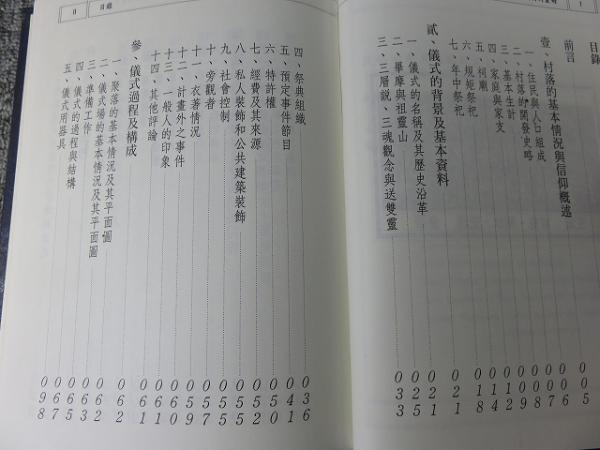 目錄
前言 005
壹、村落的基本情況與信仰概述 007
一、住民與人口組成 008
二、村落的開發史略 009
三、基本生計 012
四、家庭與家支 014
五、祠廟 018
六、規矩祭祀
七、年中祭祀 021
貳、儀式的背景及基本資料 021
一、儀式的名稱及其歷史沿革 025
二、畢摩與祖靈山
三、三層說、三魂觀念與送雙靈 033
目錄 II
四、祭典組織 036
五、預定事件節目 041
六、特許權 050
七、經費及其來源 052
八、私人裝飾和公共建築裝飾 055
九、社會控制 055
十、旁觀者 057
十一、衣著情況 059
十二、計畫外之事件 060
十三、一般人的印象 061
十四、其他評論 061
參、儀式過程及構成 062
一、聚落的基本情況及其平面圖 062
二、儀式場的基本情況及其平面圖
三、準備工作 063
四、儀式的過程與結構 067
五、儀式用器具 098